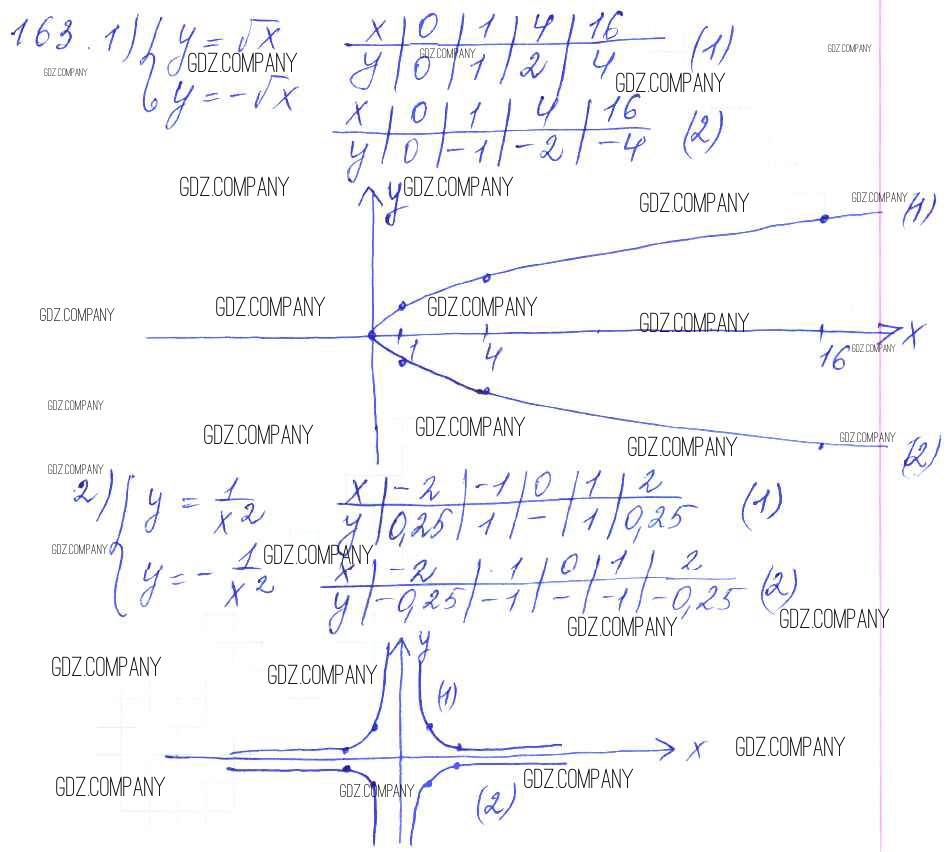 163. 1) { y = √x   x | 0 | 1 | 4 | 16   (1)
GDZ.COMPANY GDZ.COMPANY GDZ.COMPANY
GDZ.COMPANY y | 0 | 1 | 2 | 4 GDZ.COMPANY
y = -√x   x | 0 | 1 | 4 | 16   (2)
y | 0 | -1 | -2 | -4
GDZ.COMPANY y GDZ.COMPANY
GDZ.COMPANY GDZ.COMPANY (1)
GDZ.COMPANY GDZ.COMPANY GDZ.COMPANY
GDZ.COMPANY x
1 4 16 GDZ.COMPANY
GDZ.COMPANY
GDZ.COMPANY GDZ.COMPANY GDZ.COMPANY GDZ.COMPANY
(2)
GDZ.COMPANY
2) { y = 1/x²   x | -2 | -1 | 0 | 1 | 2   (1)
y | 0,25 | 1 | - | 1 | 0,25
GDZ.COMPANY GDZ.COMPANY
y = - 1/x²   x | -2 | -1 | 0 | 1 | 2   (2)
y | -0,25 | -1 | - | -1 | -0,25
GDZ.COMPANY GDZ.COMPANY
y
GDZ.COMPANY GDZ.COMPANY (1)
x GDZ.COMPANY
GDZ.COMPANY GDZ.COMPANY GDZ.COMPANY
(2)